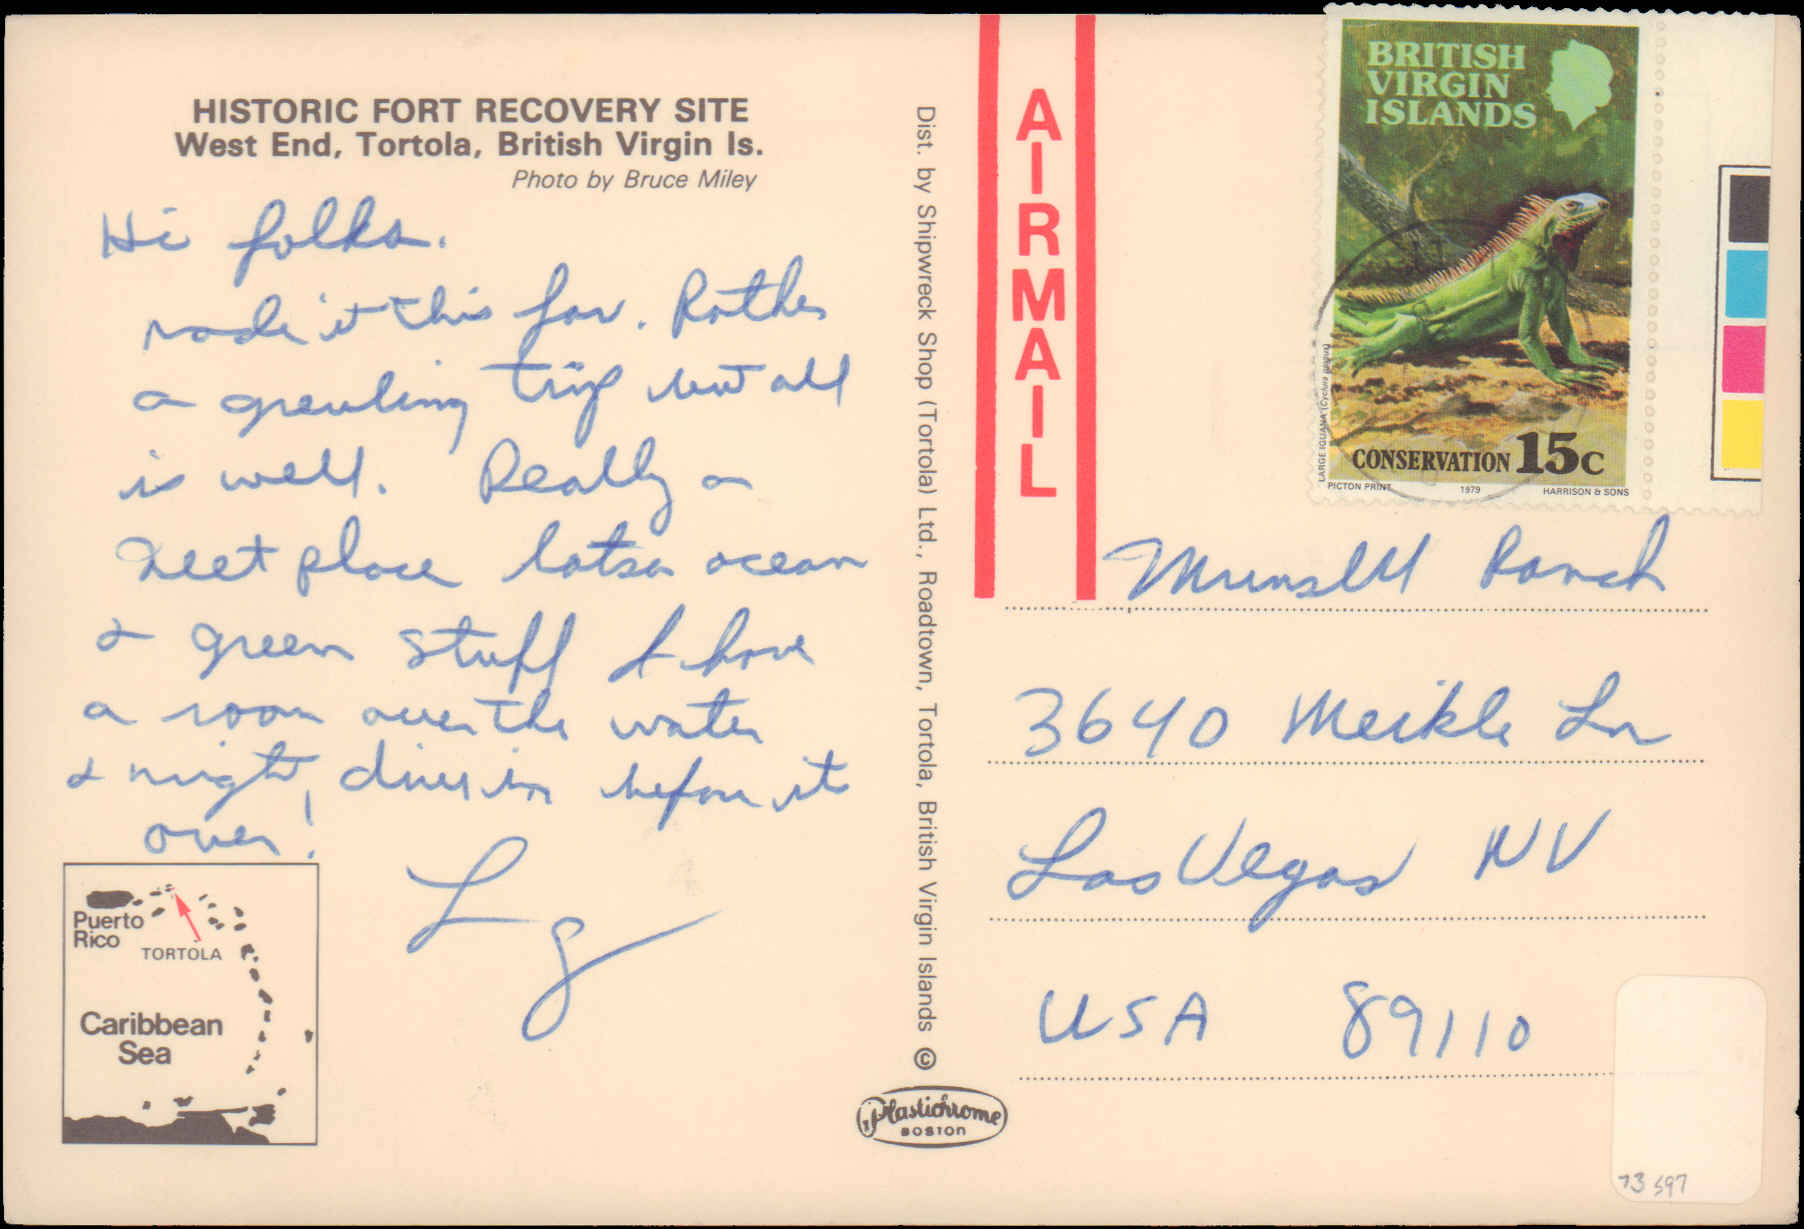 HISTORIC FORT RECOVERY SITE
West End, Tortola, British Virgin Is.
Photo by Bruce Miley
Hi folks.
made it this far. Rather
a greuling trip but all
is well. Really a
neet place lotsa ocean
& green stuff I have
a room over the water
& might dive in before it
over!
Lg
Puerto
Rico
TORTOLA
Caribbean
Sea
Dist. by Shipwreck Shop (Tortola) Ltd., Roadtown, Tortola, British Virgin Islands ©
Plastichrome
BOSTON
AIRMAIL
BRITISH
VIRGIN
ISLANDS
LARGE IGUANA (Cyclura pinguis)
CONSERVATION 15c
PICTON PRINT 1979 HARRISON & SONS
Munsell Ranch
3640 Meikle Ln
Las Vegas NV
USA 89110
73597